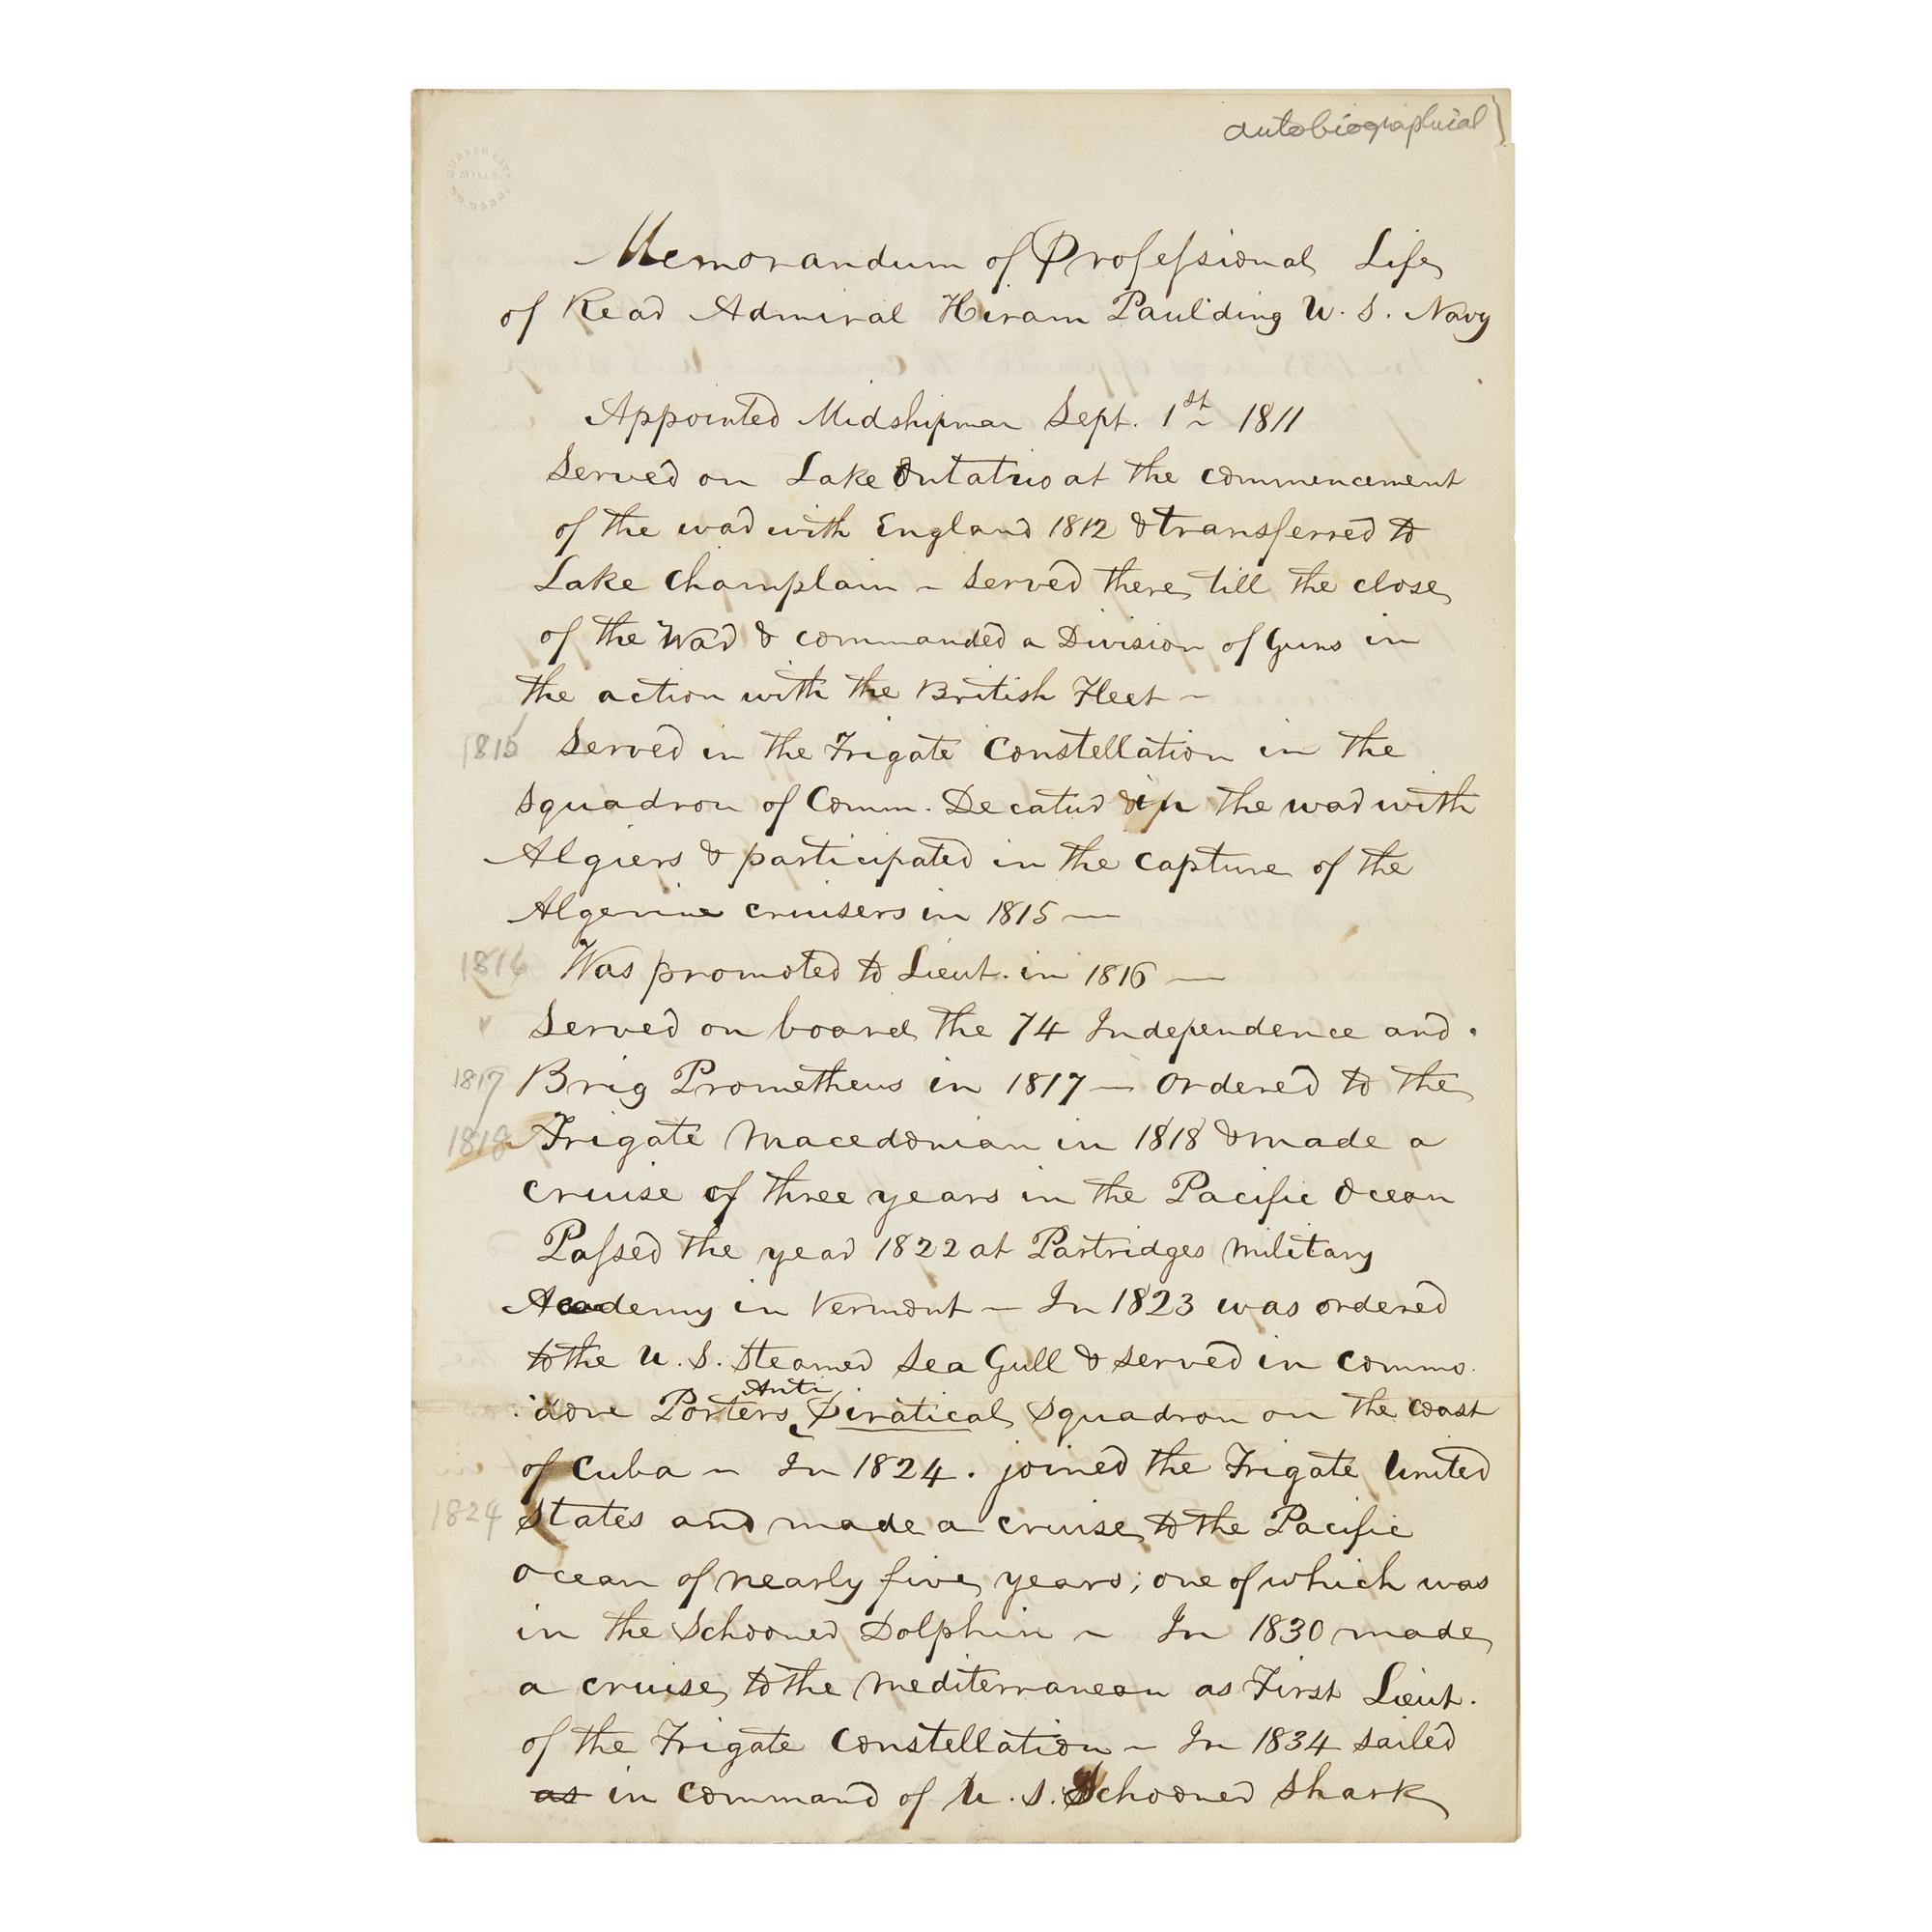 autobiographical
QUAKER CITY
MILLS
Memorandum of Professional Life
of Rear Admiral Hiram Paulding U. S. Navy
Appointed Midshipman Sept. 1st 1811
Served on Lake Ontario at the commencement
of the war with England 1812 & transferred to
Lake Champlain - Served there till the close
of the War & commanded a Division of Guns in
the action with the British Fleet -
1815 Served in the Frigate Constellation in the
Squadron of Comm. Decatur in the war with
Algiers & participated in the capture of the
Algerine cruisers in 1815 —
1816 Was promoted to Lieut. in 1816 —
Served on board the 74 Independence and
1817 Brig Prometheus in 1817 — Ordered to the
1818 Frigate Macedonian in 1818 & made a
cruise of three years in the Pacific Ocean
Passed the year 1822 at Partridges Military
Academy in Vermont - In 1823 was ordered
to the U. S. Steamer Sea Gull & served in Commo.
dore Porters Anti Piratical Squadron on the Coast
of Cuba - In 1824. joined the Frigate United
1824 States and made a cruise to the Pacific
Ocean of nearly five years; one of which was
in the Schooner Dolphin - In 1830 made
a cruise to the Mediterranean as First Lieut.
of the Frigate Constellation - In 1834 sailed
as in command of U. S. Schooner Shark